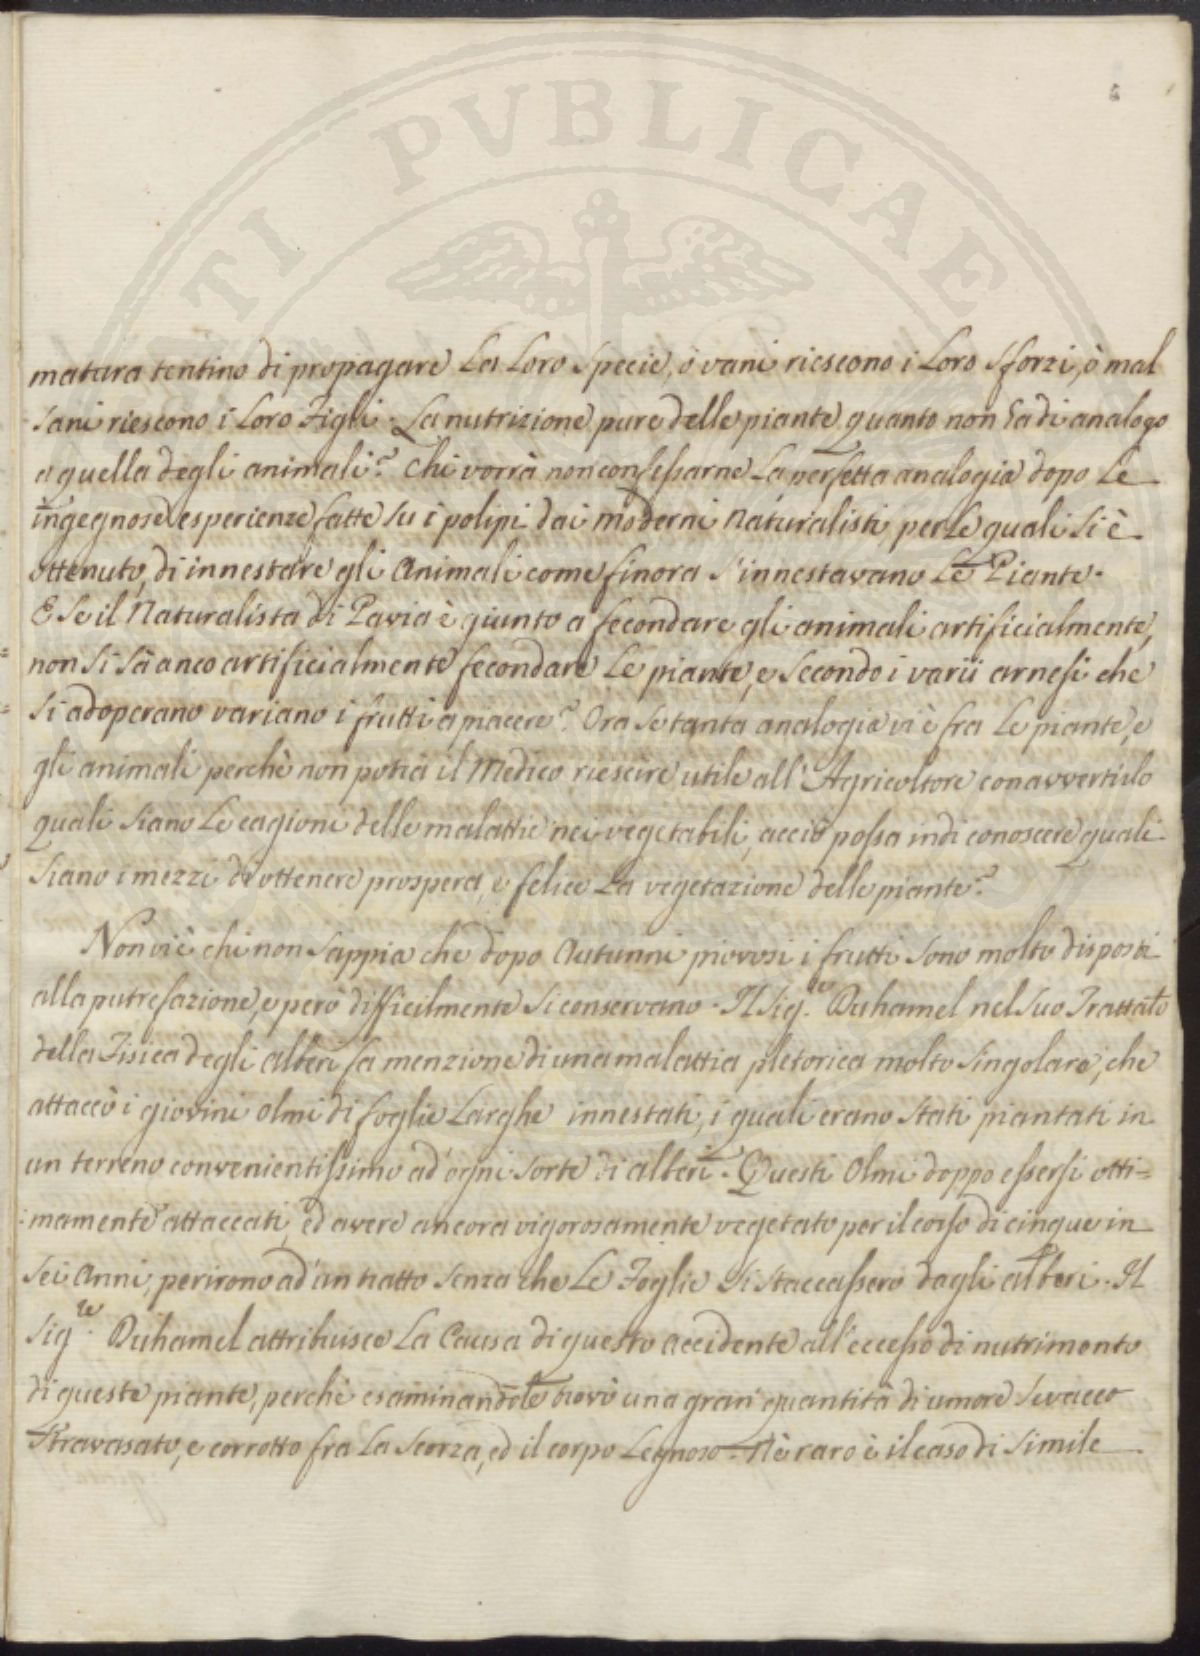 TI PVBLICAE
5
matura tentino di propagare La Loro Specie, ò vani riescono i Loro Sforzi, ò mal
Sani riescono i Loro Figli. La nutrizione pure delle piante quanto non ha di analogo
a quella degli animali? Chi vorrà non confessarne La perfetta analogia dopo Le
ingegnose esperienze fatte Su i polipi dai moderni Naturalisti, per Le quali Si è
ottenuto, di innestare gli Animali come finora S'innestavano Le Piante.
E Se il Naturalista di Pavia è giunto a fecondare gli animali artificialmente,
non Si Sà anco artificialmente fecondare Le piante, e Secondo i varii arnesi che
Si adoperano variano i frutti a piacere? Ora Se tanta analogia vi è fra Le piante, e
gli animali perchè non potrà il Medico riescire utile all'Agricoltore con avvertirlo
quali Siano Le cagioni delle malattie nei vegetabili, acciò possa indi conoscere quali
Siano i mezzi di ottenere prospera, e felice La vegetazione delle piante?
Non vi è chi non Sappia che dopo Autunni piovosi i frutti Sono molto disposti
alla putrefazione, e però difficilmente Si conservano. Il Sig.re Duhamel nel Suo Trattato
della Fisica degli alberi fa menzione di una malattia pletorica molto Singolare, che
attaccò i giovini olmi di foglie Larghe innestati, i quali erano Stati piantati in
un terreno convenientissimo ad ogni Sorte di alberi. Questi Olmi doppo essersi otti=
=mamente attaccati, ed avere ancora vigorosamente vegetato per il corso di cinque in
Sei Anni, perirono ad un tratto Senza che Le Foglie Si Staccassero dagli alberi. Il
Sig.re Duhamel attribuisce La Causa di questo accidente all'eccesso di nutrimento
di queste piante, perchè esaminandole trovò una gran quantità di umore Sevacco
Stravasato, e corrotto fra La Scorza, ed il corpo Legnoso. Nè raro è il caso di Simile